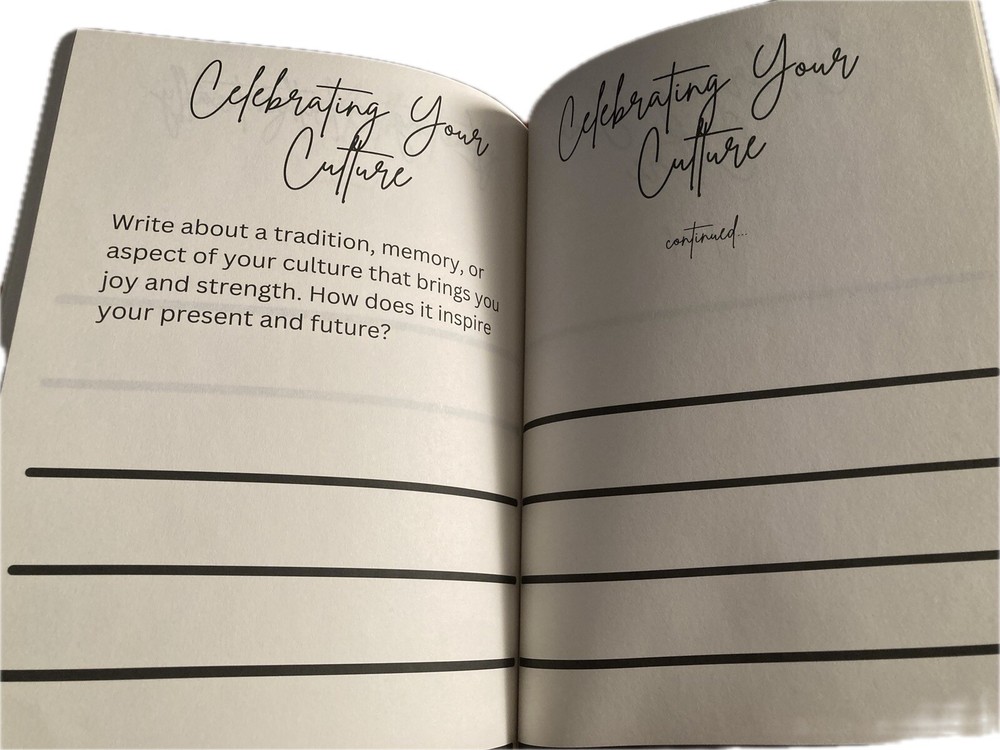 Celebrating Your
Culture
Write about a tradition, memory, or
aspect of your culture that brings you
joy and strength. How does it inspire
your present and future?
Celebrating Your
Culture
continued...